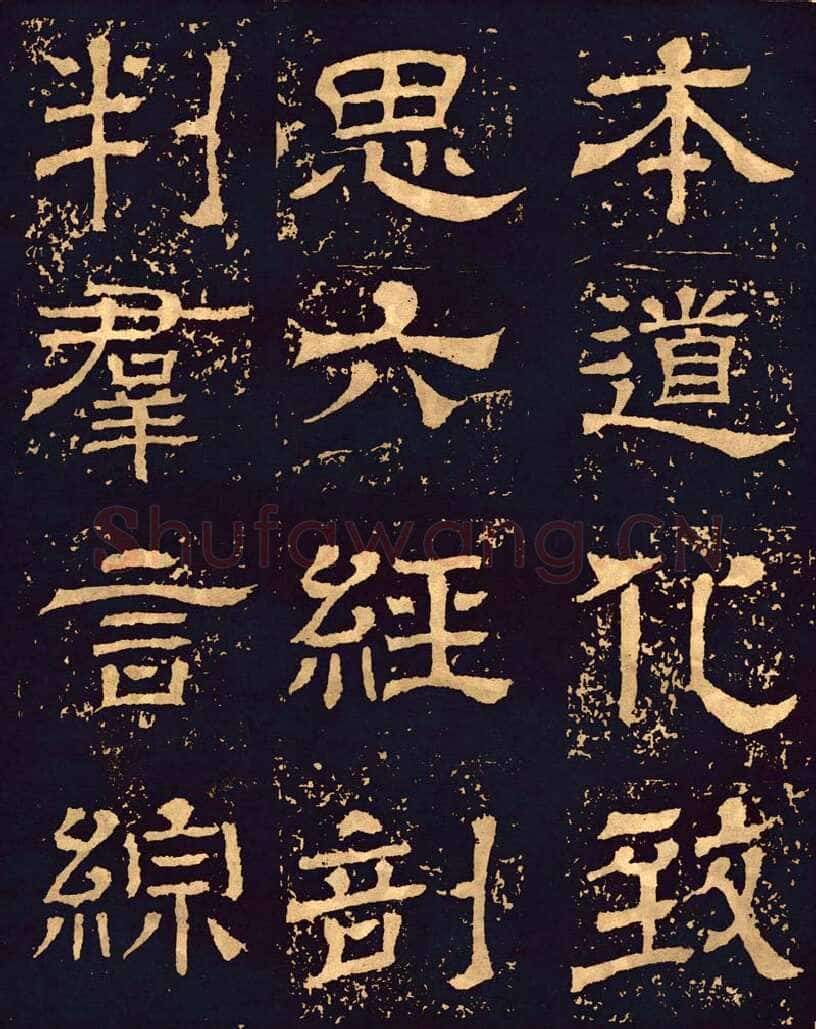 本道化致
思六經剖
判羣言綜
Shufawang.CN